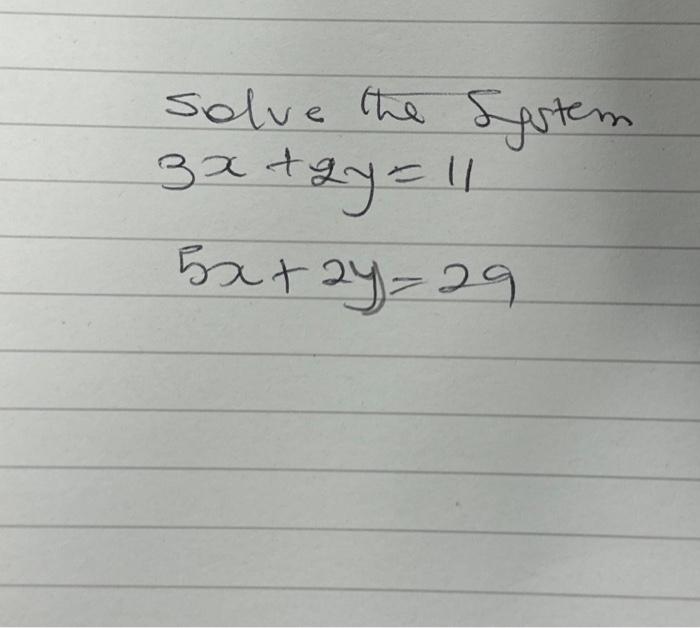 Solve the System
3x + 2y = 11
5x + 2y = 29